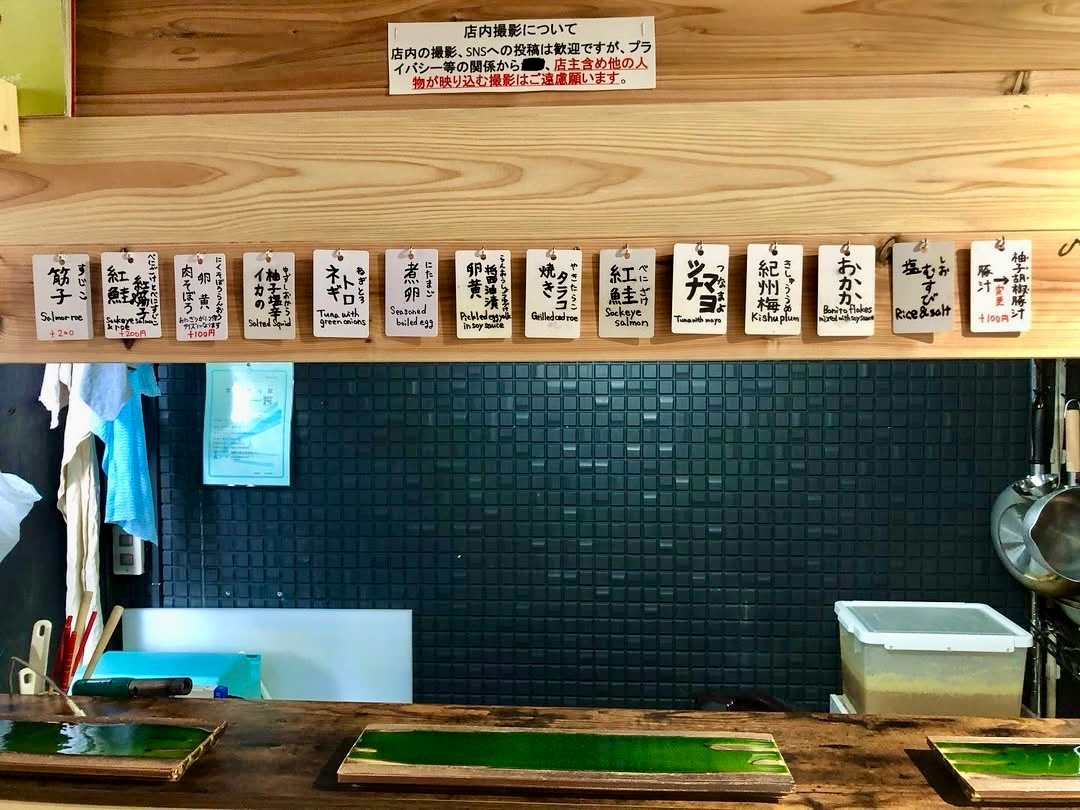 店内撮影について
店内の撮影、SNSへの投稿は歓迎ですが、プラ
イバシー等の関係から、店主含め他の人
物が映り込む撮影はご遠慮願います。
すじこ
筋子
Salmon roe
+200
紅鮭
紅筋子
Sockeye salmon
& roe
+200円
卵黄
肉そぼろ
+100円
柚子塩辛
イカの
Salted Squid
ねぎとろ
ネギトロ
Tuna with
green onions
にたまご
煮卵
Seasoned
boiled egg
卵黄
醤油漬
Pickled egg yolk
in soy sauce
やきたらこ
焼きタラコ
Grilled cod roe
べにざけ
紅鮭
Sockeye
salmon
つなまよ
ツナマヨ
Tuna with mayo
きしゅううめ
紀州梅
Kishu plum
おかか
Bonito flakes
mixed with soy sauce
しお
塩むすび
Rice & salt
柚子胡椒豚汁
→変更
豚汁
+100円